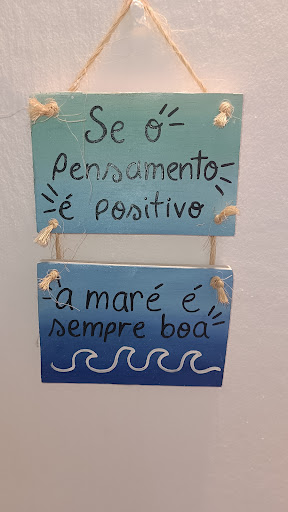 Se o
pensamento
é positivo
a maré é
sempre boa